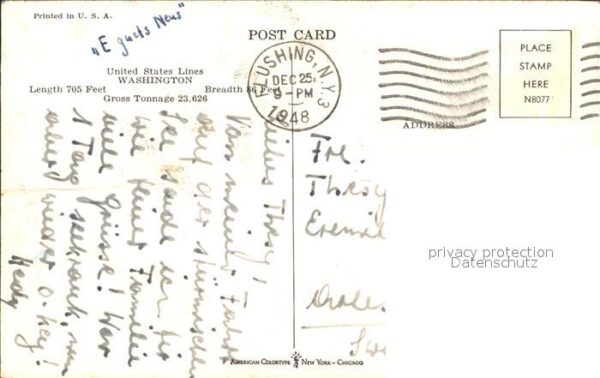 Printed in U. S. A.
"E guets Neus"
POST CARD
United States Lines
WASHINGTON
Length 705 Feet Breadth 86 Feet
Gross Tonnage 23,626
FLUSHING, N.Y. 3
DEC 25
9-PM
1948
PLACE
STAMP
HERE
N8077
ADDRESS
Liebes Thresy!
Von meiner Fahrt
auf der stürmischen
See sende ich Dir
wie Deiner Familie
viele Grüsse! War
1 Tag seekrank, nun
aber wieder o.key!
Hedy
Fre.
Thresy
privacy protection
Datenschutz
AMERICAN COLORTYPE NEW YORK - CHICAGO